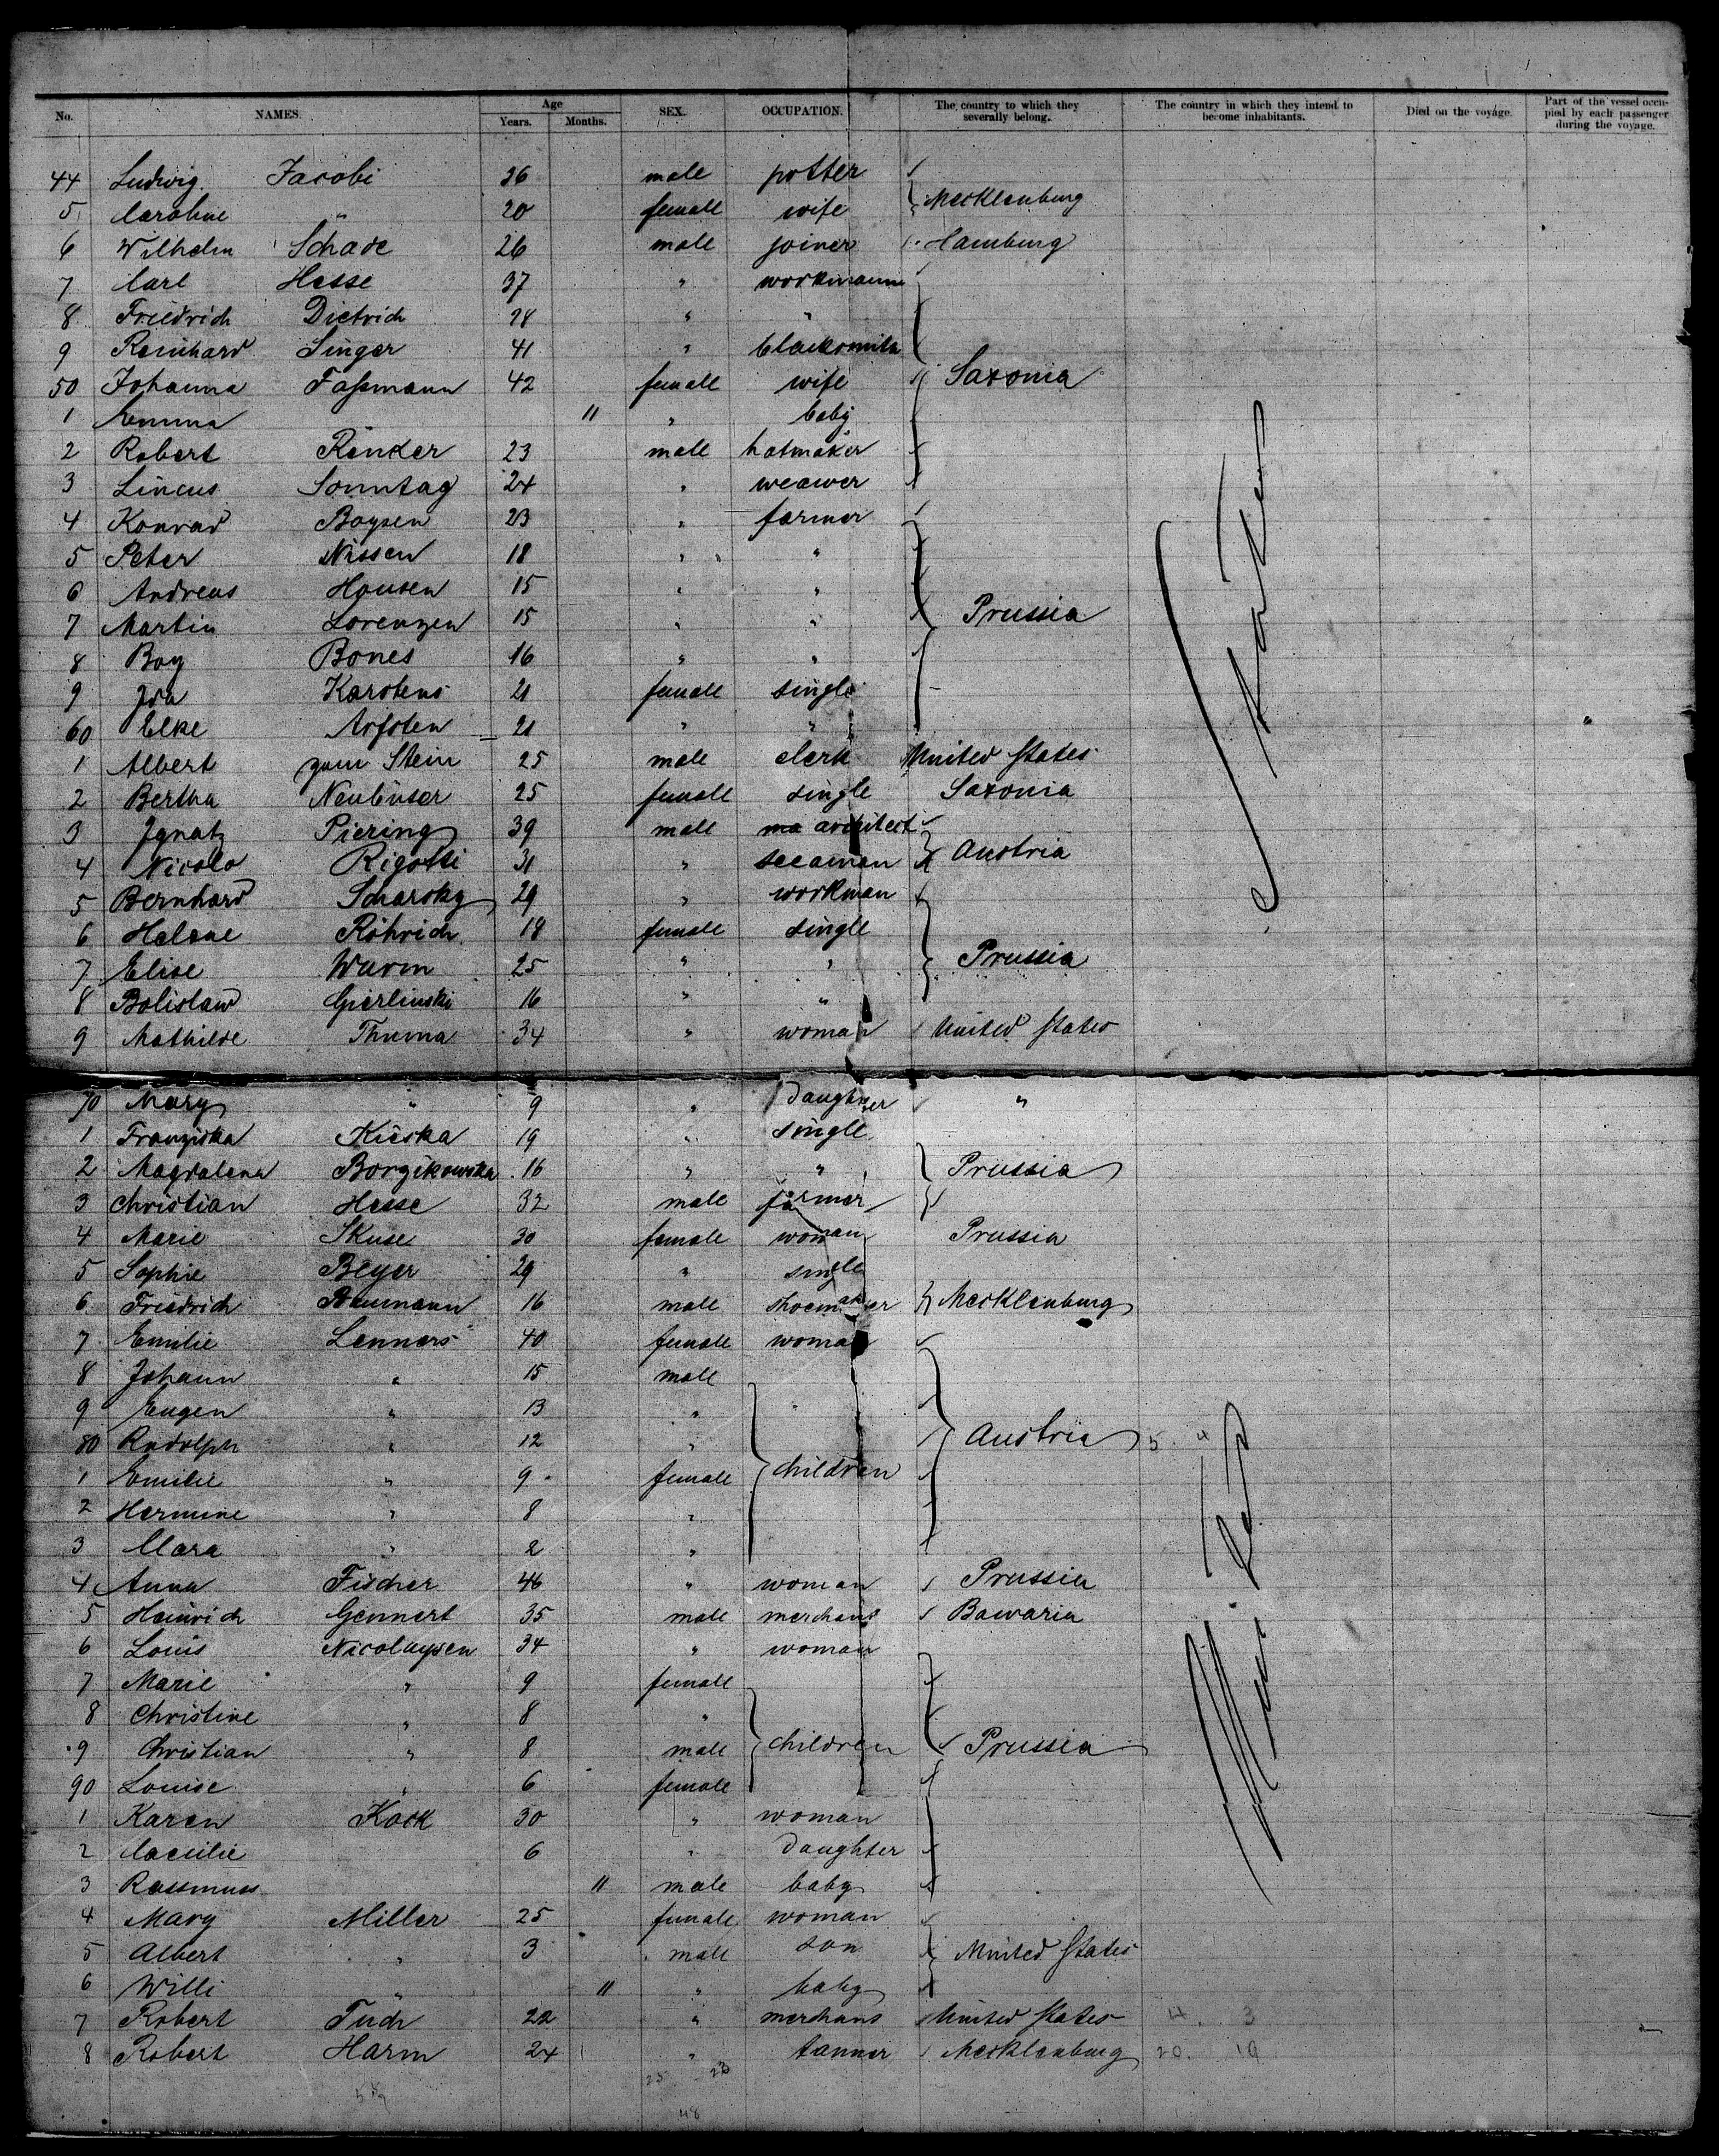 No. NAMES. Age Years. Months. SEX. OCCUPATION. The country to which they severally belong. The country in which they intend to become inhabitants. Died on the voyage. Part of the vessel occupied by each passenger during the voyage.
44 Ludwig Jacobi 26 male potter
5 Caroline " 20 female wife Mecklenburg
6 Wilhelm Schade 26 male joiner Hamburg
7 Carl Hesse 37 " workmann
8 Friedrich Dietrich 28 " "
9 Reinhard Singer 41 " blacksmith
50 Johanna Faßmann 42 female wife Saxonia
1 Emma 11 " baby
2 Robert Renker 23 male hatmaker
3 Lineus Sonntag 24 " weawer
4 Konrad Boysen 23 " farmer
5 Peter Nissen 18 " " "
6 Andreas Hansen 15 " "
7 Martin Lorenzen 15 " " Prussia
8 Boy Bones 16 " "
9 Ida Karstens 21 female single
60 Elke Arfsten 21 " "
1 Albert zum Stein 25 male clerk United States
2 Bertha 25 female single Saxonia
3 Ignatz Piering 39 male architect
4 Nicolo Rigotti 31 " seeaman Austria
5 Bernhard Scharsky 29 " workman
6 Helene Röhrich 18 female single
7 Elise Wurm 25 " " Prussia
8 Bolislaw Gierlinski 16 " "
9 Mathilde Thuma 34 " woman United States
70 Mary " 9 " Daughter "
1 Franziska Kieska 19 " single
2 Magdalena Borzikowska 16 " " Prussia
3 Christian Hesse 32 male farmer
4 Marie Skuse 30 female woman Prussia
5 Sophie Beyer 29 " single
6 Friedrich Baumann 16 male shoemaker Mecklenburg
7 Emilie Lenners 40 female woman
8 Johann " 15 male
9 Eugen " 13 "
80 Rudolph " 12 " Austria 5. 4
1 Emilie " 9 female children
2 Hermine " 8 "
3 Clara " 2 "
4 Anna Fischer 46 " woman Prussia
5 Heinrich Gennert 35 male merchant Bawaria
6 Louis Nicolaysen 34 " woman
7 Marie " 9 female
8 Christine " 8 "
9 Christian " 8 male children Prussia
90 Louise " 6 female
1 Karen Kock 30 " woman
2 Caecilie 6 " Daughter
3 Rassmuss 11 male baby
4 Mary Miller 25 female woman
5 Albert " 3 male son United States
6 Willi " 11 " baby
7 Robert Tuch 22 " merchans United States 4. 3
8 Robert Harm 24 " tanner Mecklenburg 20. 19
25 23
48
States